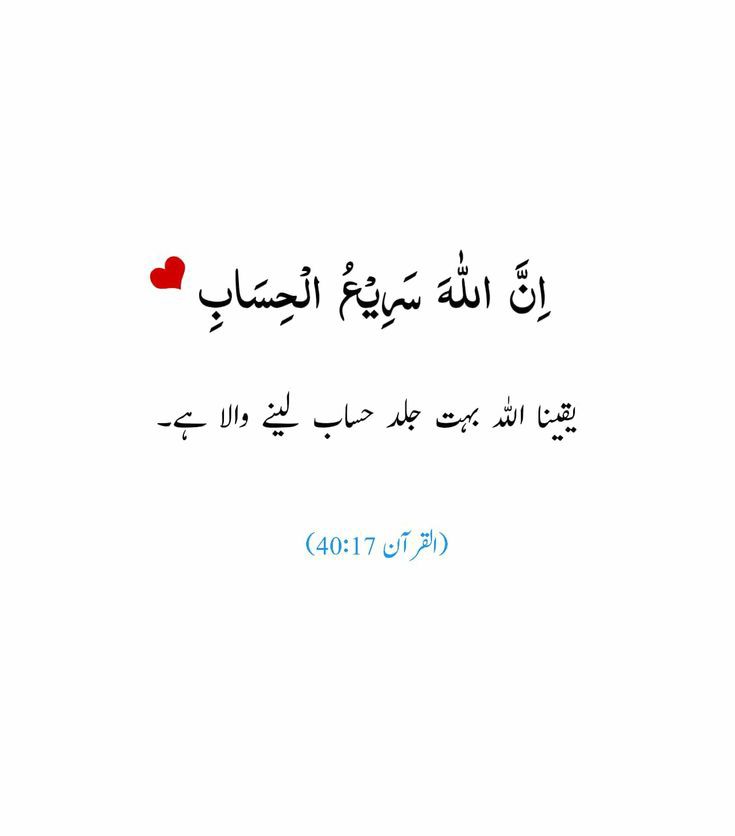 اِنَّ اللّٰهَ سَرِيْعُ الْحِسَابِ
یقینا اللہ بہت جلد حساب لینے والا ہے۔
(القرآن 40:17)